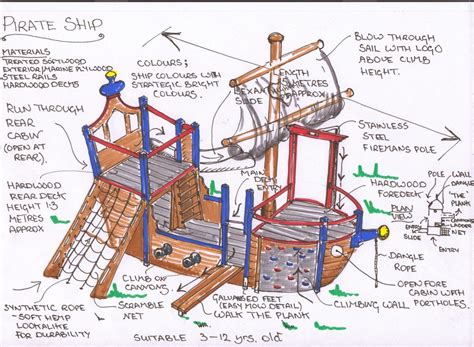 PIRATE SHIP
MATERIALS
TREATED SOFTWOOD
EXTERIOR/MARINE PLYWOOD
STEEL RAILS
HARDWOOD DECKS
COLOURS;
SHIP COLOURS WITH
STRATEGIC BRIGHT
COLOURS.
LENGTH
METRES
APPROX
SLIDE
BLOW THROUGH
SAIL WITH LOGO
ABOVE CLIMB
HEIGHT.
RUN THROUGH
REAR
CABIN
(OPEN AT
REAR).
STAINLESS
STEEL
FIREMANS POLE
MAIN
DECK
ENTRY
HARDWOOD
REAR DECK
HEIGHT 1.3
METRES
APPROX
HARDWOOD
FOREDECK
PLAN
VIEW
POLE
WALL
'THE'
PLANK
LADDER
NET
ENTRY
SLIDE
ENTRY
DANGLE
ROPE
OPEN FORE
CABIN WITH
PORTHOLES.
CLIMBING WALL
CLIMB ON
CANYONS.
SCRAMBLE
NET
GALVANISED FEET
(EASY MOW DETAIL)
WALK THE PLANK
SYNTHETIC ROPE
- SOFT HEMP
LOOKALIKE
FOR DURABILITY
SUITABLE 3-12 yrs. old